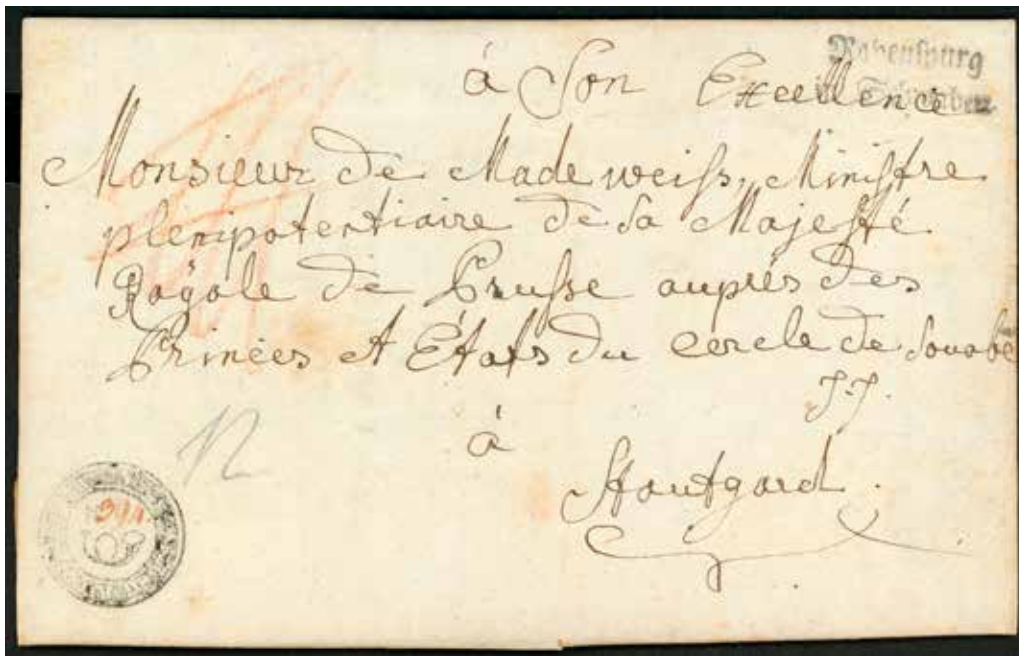 Ravensburg
in Schwaben
á Son Excellence
Monsieur de Madeweiss, Ministre
plenipotentiaire de sa Majesté
Royale de Prusse auprés des
Princes et Etats du cercle de Souabe
á
Stoutgard.